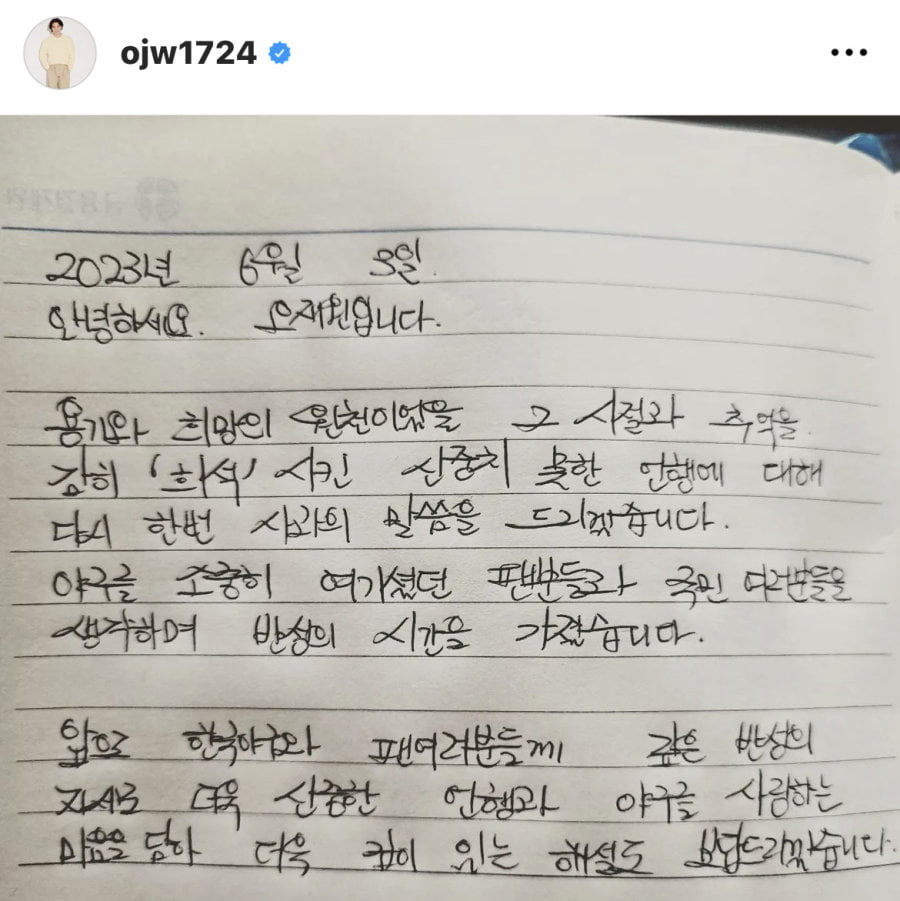 ojw1724
2023년 6월 5일.
안녕하세요. 오재원입니다.
용기와 희망의 원천이었을 그 시절과 추억을
감히 '희석' 시킨 신중치 못한 언행에 대해
다시 한번 사과의 말씀을 드리겠습니다.
야구를 소중히 여기셨던 팬분들과 국민 여러분들을
생각하며 반성의 시간을 가졌습니다.
앞으로 한국야구와 팬여러분들께 깊은 반성의
자세로 더욱 신중한 언행과 야구를 사랑하는
마음을 담아 더욱 깊이 있는 해설로 보답드리겠습니다.